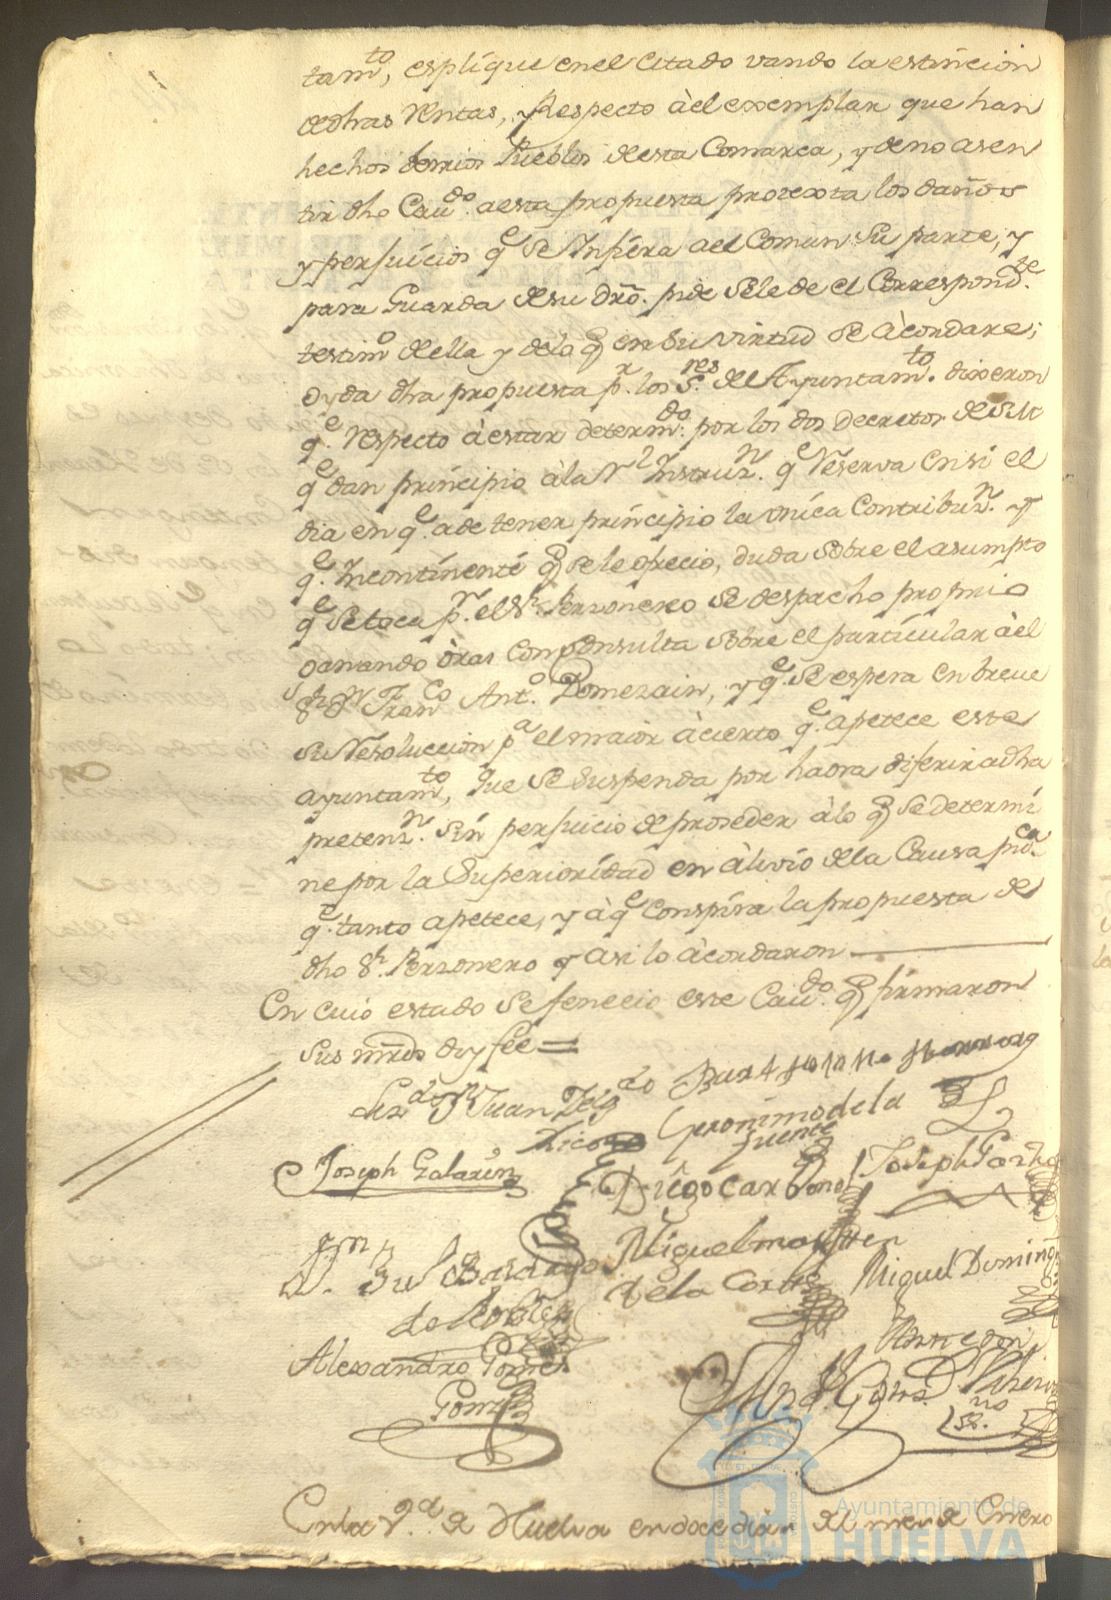 tam.to, esplique en el citado vando la estincion
de dhas Rentas, y Respecto àel exemplar que han
hechos demas Pueblos de esta Comarca, y de no asen
tir dho Cau.do a esta propuesta protexta los daños
y perjuicios q.e se Infiera a el Comun su parte, y
para Guarda de su dro. pide se le de el Correspond.te
testim.o de ella y de lo q en su virtud se àcordare;
oyda dha propuesta p.r los S.res del Ayuntam.to dixeron
q.e respecto à estar determ.do por los dos Decretos de S.M.
q.e dan principio à la R.l Instruz.n q.e Reserva en si el
dia en q.e a de tener principio la unica Contribuz.n y
q.e Incontinenti q se le ofrecio, duda sobre el asumpto
q.e se toca p.r el S.r Perzonero se despacho proprio
ganando òras con consulta sobre el particular à el
S.r D.n Fran.co Ant.o Domezain, y q.e se espera en breve
su Resoluccion p.a el maior àcierto q.e apetece este
ayuntam.to, que se suspenda por haora diferir a dha
pretenz.n sin perjuicio de proseder à lo q se determi
ne por la Superioridad en àlivio de la Causa pu.ca
q.e tanto apetece, y à q.e Conspira la propuesta de
dho S.r Perzonero y asi lo àcordaron
En cuio estado se fenecio este Cau.do q firmaron
sus mrds doy fee =
Liz.do D.n Juan
Geronimo de la
fuente
Joseph Galarin
Diego Cardono
Joseph
Miguel
de la Corte
Miguel Domin
Alexandro Gomez
En la V.a de Huelva en doce dias del mes de Enero
Ayuntamiento de
HUELVA